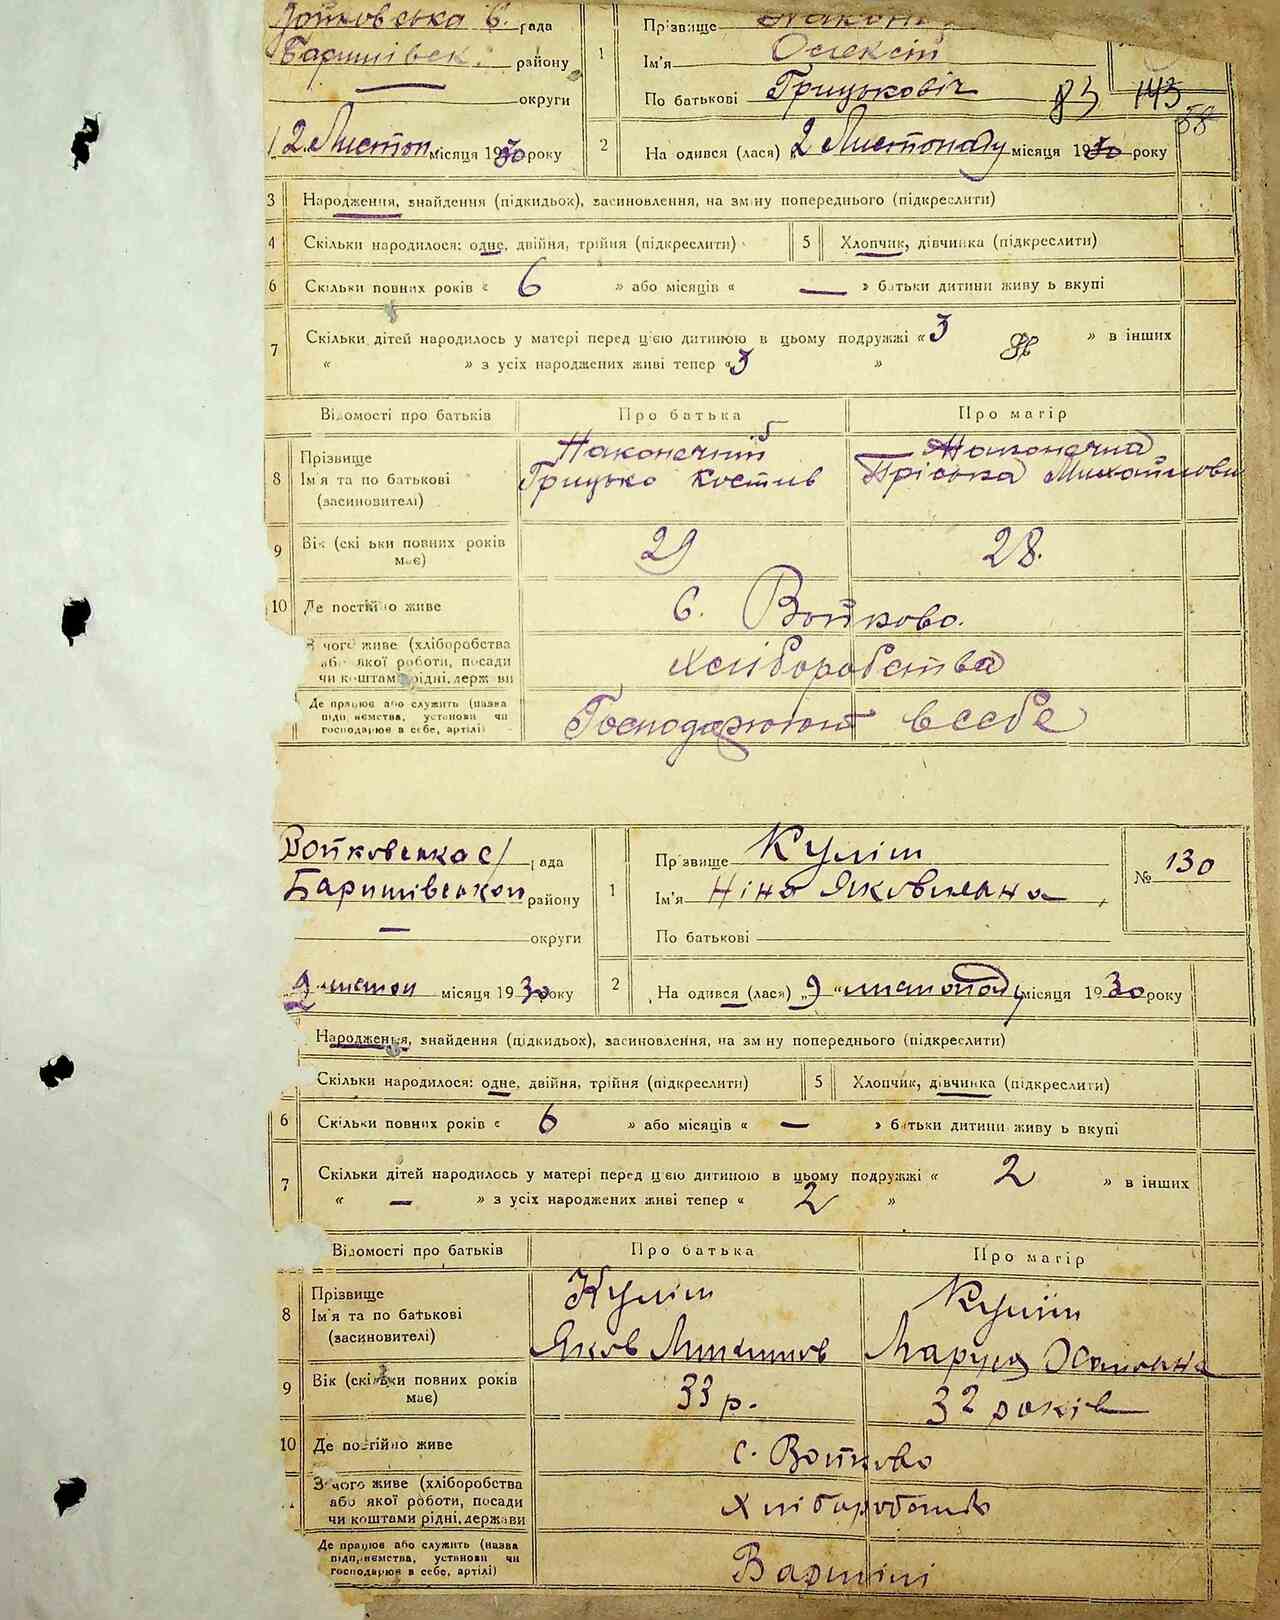 рада
Баришівск. району
округи
1
Прізвище
Ім'я Олексій
По батькові Грицьковіч 83 143
58
12 Листоп місяця 1930 року
2
Народився (лася) „2 Листопаду місяця 1930 року
3 Народження, знайдення (підкидьок), засиновлення, на зміну попереднього (підкреслити)
4 Скільки народилося: одне, двійня, трійня (підкреслити) 5 Хлопчик, дівчинка (підкреслити)
6 Скільки повних років « 6 » або місяців « — » батьки дитини живуть вкупі
7 Скільки дітей народилось у матері перед цією дитиною в цьому подружжі « 3 » в інших
« » з усіх народжених живі тепер « 3 »
Відомості про батьків Про батька Про матір
8 Прізвище
Ім'я та по батькові
(засиновителі)
Наконечний
Грицько Костів
Наконечна
Пріська Михайловн
9 Вік (скільки повних років має) 29 28.
10 Де постійно живе с. Войково.
З чого живе (хліборобства
або якої роботи, посади
чи коштами рідні, держави
Хліборобства
Де працює або служить (назва
підприємства, установи чи
господарює в себе, артілі)
Господарюют в себе
Войковська с/рада
Баришівської району
— округи
1
Прізвище Куліш
Ім'я Ніна Яковлевна
По батькові
№ 130
9 листоп місяця 1930 року
2
Народився (лася) „9 “ листопаду місяця 1930 року
Народження, знайдення (підкидьок), засиновлення, на зміну попереднього (підкреслити)
Скільки народилося: одне, двійня, трійня (підкреслити) 5 Хлопчик, дівчинка (підкреслити)
6 Скільки повних років « 6 » або місяців « — » батьки дитини живуть вкупі
7 Скільки дітей народилось у матері перед цією дитиною в цьому подружжі « 2 » в інших
« — » з усіх народжених живі тепер « 2 »
Відомості про батьків Про батька Про матір
8 Прізвище
Ім'я та по батькові
(засиновителі)
Куліш
Яков
Куліш
Маруся
9 Вік (скільки повних років має) 33 р. 32 років
10 Де постійно живе с. Войково
З чого живе (хліборобства
або якої роботи, посади
чи коштами рідні, держави
Хліборобств
Де працює або служить (назва
підприємства, установи чи
господарює в себе, артілі)
В артілі